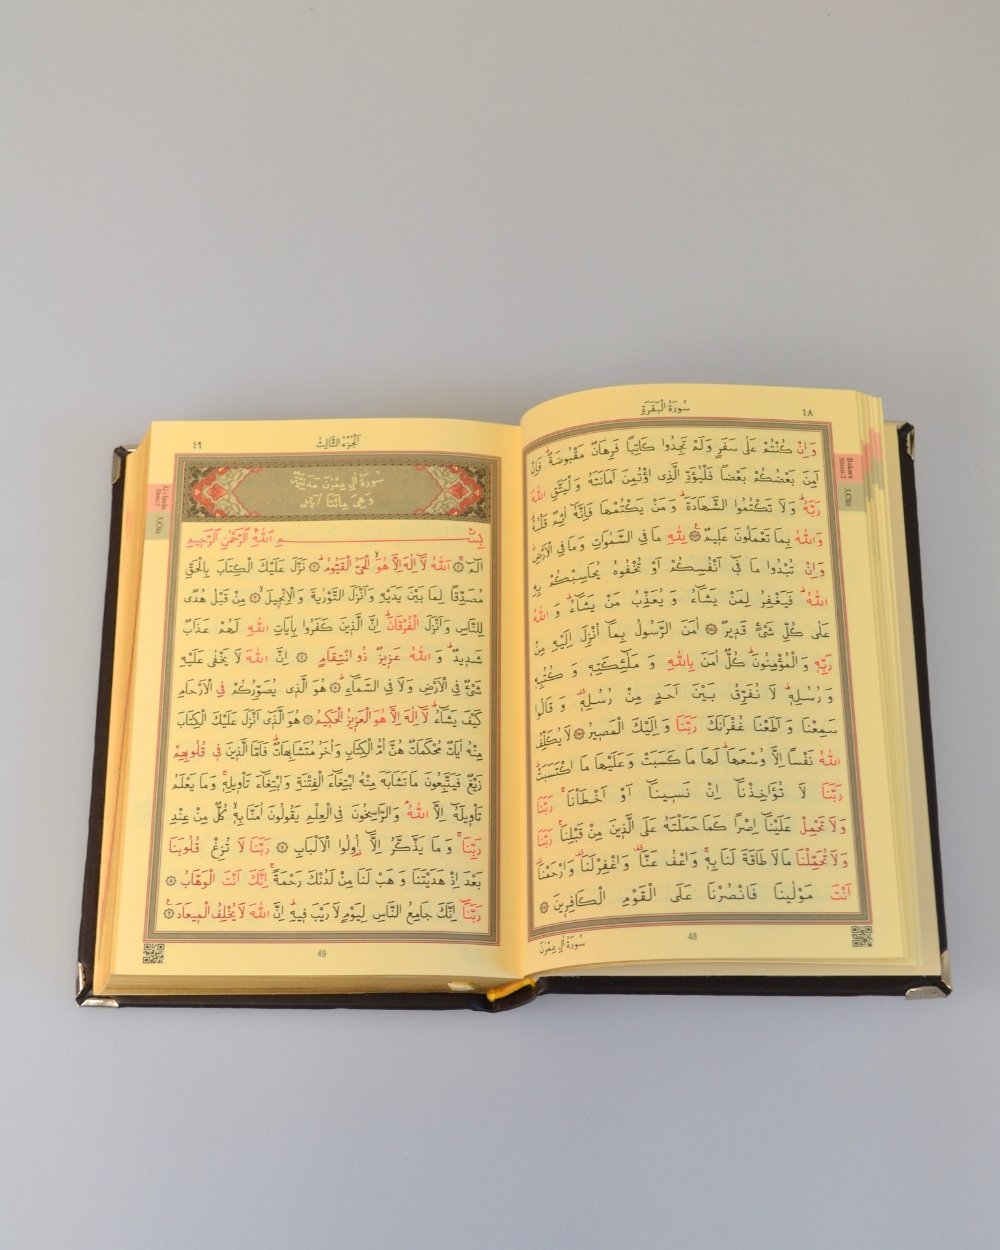 ٤٨
سُورَةُ الْبَقَرَةِ
وَاِنْ كُنْتُمْ عَلٰى سَفَرٍ وَلَمْ تَجِدُوا كَاتِبًا فَرِهَانٌ مَقْبُوضَةٌۜ فَاِنْ
اَمِنَ بَعْضُكُمْ بَعْضًا فَلْيُؤَدِّ الَّذِي اؤْتُمِنَ اَمَانَتَهُ وَلْيَتَّقِ اللّٰهَ
رَبَّهُۜ وَلَا تَكْتُمُوا الشَّهَادَةَۜ وَمَنْ يَكْتُمْهَا فَاِنَّهُٓ اٰثِمٌ قَلْبُهُۜ
وَاللّٰهُ بِمَا تَعْمَلُونَ عَلِيمٌ۟ ﴿٢٨٣﴾ لِلّٰهِ مَا فِي السَّمٰوَاتِ وَمَا فِي الْاَرْضِۜ
وَاِنْ تُبْدُوا مَا فِٓي اَنْفُسِكُمْ اَوْ تُخْفُوهُ يُحَاسِبْكُمْ بِهِ
اللّٰهُۜ فَيَغْفِرُ لِمَنْ يَشَٓاءُ وَيُعَذِّبُ مَنْ يَشَٓاءُۜ وَاللّٰهُ
عَلٰى كُلِّ شَيْءٍ قَدِيرٌ ﴿٢٨٤﴾ اٰمَنَ الرَّسُولُ بِمَٓا اُنْزِلَ اِلَيْهِ مِنْ
رَبِّهِ وَالْمُؤْمِنُونَۜ كُلٌّ اٰمَنَ بِاللّٰهِ وَمَلٰٓئِكَتِهِ وَكُتُبِهِ
وَرُسُلِهِۜ لَا نُفَرِّقُ بَيْنَ اَحَدٍ مِنْ رُسُلِهِ۠ وَقَالُوا
سَمِعْنَا وَاَطَعْنَا غُفْرَانَكَ رَبَّنَا وَاِلَيْكَ الْمَصِيرُ ﴿٢٨٥﴾ لَا يُكَلِّفُ
اللّٰهُ نَفْسًا اِلَّا وُسْعَهَاۜ لَهَا مَا كَسَبَتْ وَعَلَيْهَا مَا اكْتَسَبَتْۜ
رَبَّنَا لَا تُؤَاخِذْنَٓا اِنْ نَسِينَٓا اَوْ اَخْطَأْنَاۚ رَبَّنَا
وَلَا تَحْمِلْ عَلَيْنَٓا اِصْرًا كَمَا حَمَلْتَهُ عَلَى الَّذِينَ مِنْ قَبْلِنَاۚ رَبَّنَا
وَلَا تُحَمِّلْنَا مَا لَا طَاقَةَ لَنَا بِهِۚ وَاعْفُ عَنَّا۠ وَاغْفِرْ لَنَا۠ وَارْحَمْنَا۠
اَنْتَ مَوْلٰينَا فَانْصُرْنَا عَلَى الْقَوْمِ الْكَافِرِينَ ﴿٢٨٦﴾
48
سُورَةُ اٰلِ عِمْرٰنَ
Bakara
Sûresi 2
3.Cüz
اَلْجُزْءُ الثَّالِثُ
٤٩
سُورَةُ اٰلِ عِمْرٰنَ مَدَنِيَّةٌ
وَهِيَ مِائَتَا اٰيَةٍ
بِسْمِ اللّٰهِ الرَّحْمٰنِ الرَّحِيمِ
الٓمٓۚ ﴿١﴾ اَللّٰهُ لَٓا اِلٰهَ اِلَّا هُوَۙ الْحَيُّ الْقَيُّومُۜ ﴿٢﴾ نَزَّلَ عَلَيْكَ الْكِتَابَ بِالْحَقِّ
مُصَدِّقًا لِمَا بَيْنَ يَدَيْهِ وَاَنْزَلَ التَّوْرٰيةَ وَالْاِنْجِيلَۙ ﴿٣﴾ مِنْ قَبْلُ هُدًى
لِلنَّاسِ وَاَنْزَلَ الْفُرْقَانَۜ اِنَّ الَّذِينَ كَفَرُوا بِاٰيَاتِ اللّٰهِ لَهُمْ عَذَابٌ
شَدِيدٌۜ وَاللّٰهُ عَزِيزٌ ذُو انْتِقَامٍ ﴿٤﴾ اِنَّ اللّٰهَ لَا يَخْفٰى عَلَيْهِ
شَيْءٌ فِي الْاَرْضِ وَلَا فِي السَّمَٓاءِۜ ﴿٥﴾ هُوَ الَّذِي يُصَوِّرُكُمْ فِي الْاَرْحَامِ
كَيْفَ يَشَٓاءُۜ لَٓا اِلٰهَ اِلَّا هُوَ الْعَزِيزُ الْحَكِيمُ ﴿٦﴾ هُوَ الَّذِٓي اَنْزَلَ عَلَيْكَ الْكِتَابَ
مِنْهُ اٰيَاتٌ مُحْكَمَاتٌ هُنَّ اُمُّ الْكِتَابِ وَاُخَرُ مُتَشَابِهَاتٌۜ فَاَمَّا الَّذِينَ فِي قُلُوبِهِمْ
زَيْغٌ فَيَتَّبِعُونَ مَا تَشَابَهَ مِنْهُ ابْتِغَٓاءَ الْفِتْنَةِ وَابْتِغَٓاءَ تَأْوِيلِهِۚ وَمَا يَعْلَمُ
تَأْوِيلَهُٓ اِلَّا اللّٰهُۢ وَالرَّاسِخُونَ فِي الْعِلْمِ يَقُولُونَ اٰمَنَّا بِهِۙ كُلٌّ مِنْ عِنْدِ
رَبِّنَاۚ وَمَا يَذَّكَّرُ اِلَّٓا اُو۬لُوا الْاَلْبَابِ ﴿٧﴾ رَبَّنَا لَا تُزِغْ قُلُوبَنَا
بَعْدَ اِذْ هَدَيْتَنَا وَهَبْ لَنَا مِنْ لَدُنْكَ رَحْمَةًۚ اِنَّكَ اَنْتَ الْوَهَّابُ ﴿٨﴾
رَبَّنَٓا اِنَّكَ جَامِعُ النَّاسِ لِيَوْمٍ لَا رَيْبَ فِيهِۜ اِنَّ اللّٰهَ لَا يُخْلِفُ الْمِيعَادَ۟ ﴿٩﴾
49
3.Cüz